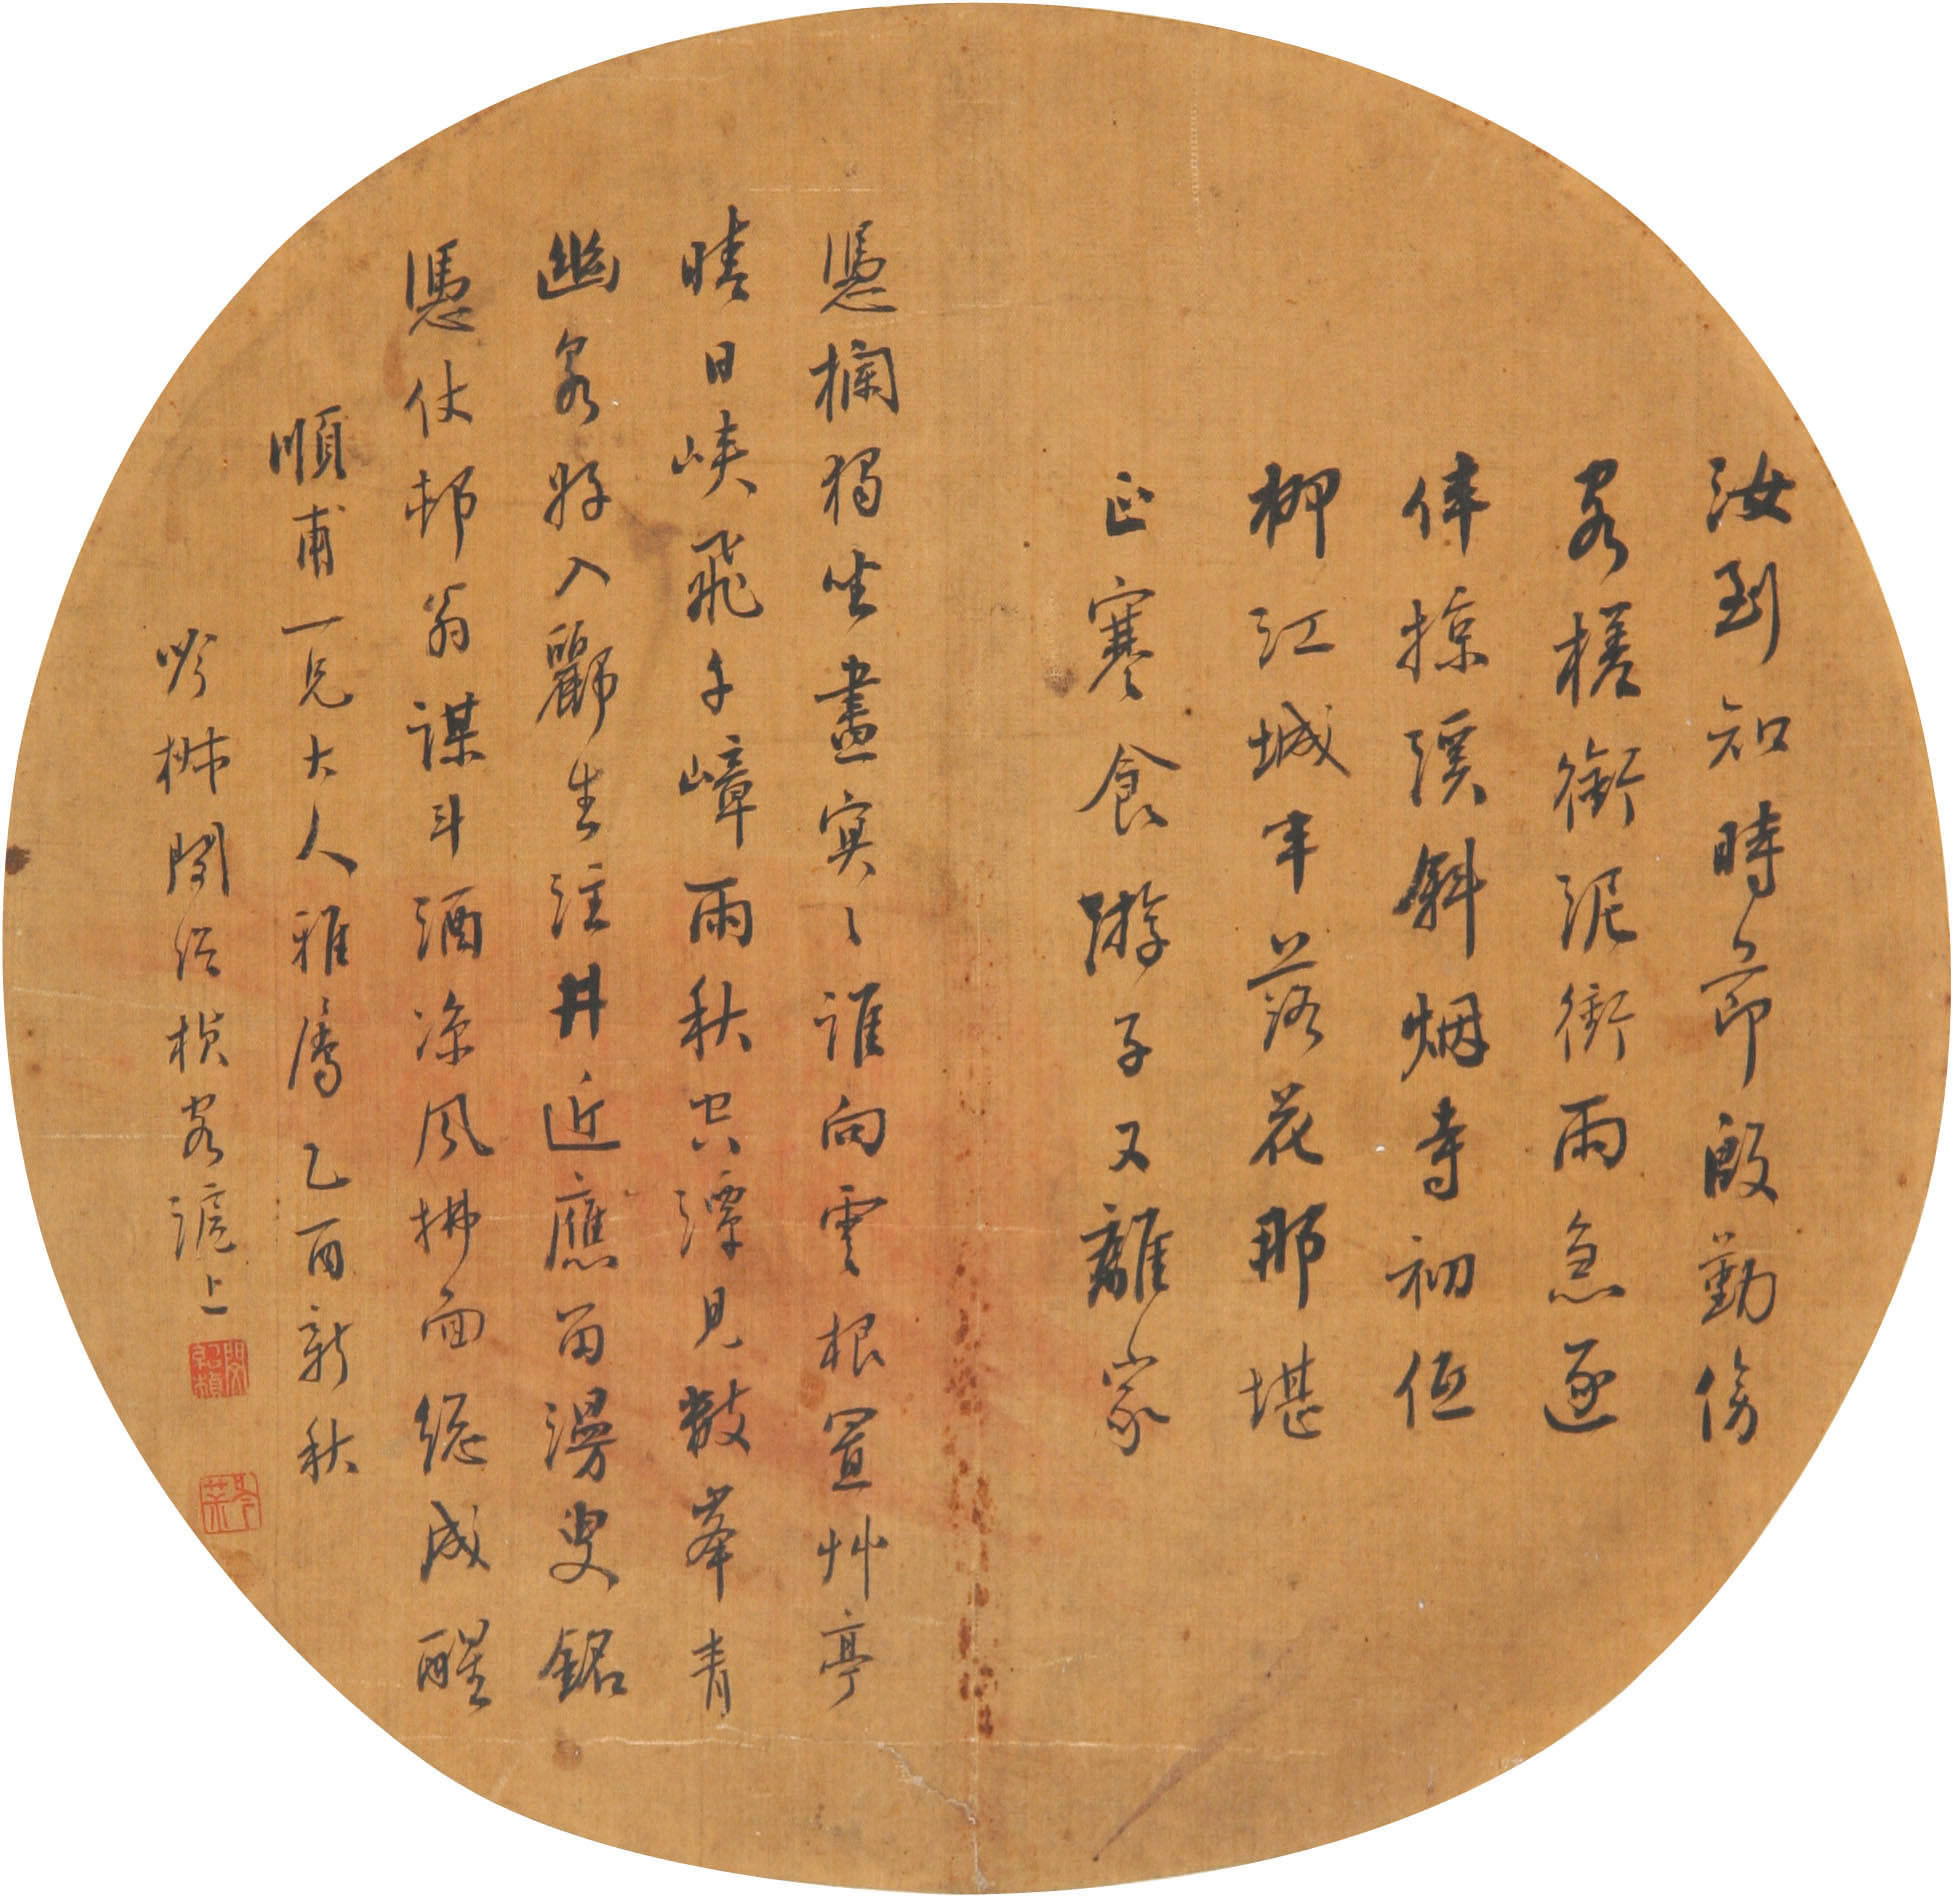 汝到知時節殷勤傍
客槎銜泥衝雨急逐
伴掠溪斜烟寺初低
柳江城半落花那堪
正寒食游子又離家
憑欄獨坐晝冥〻誰向雲根置艸亭
晴日峽飛千嶂雨秋空潭見數峯青
幽泉好入酈生注井近應留漫叟銘
憑仗邨翁謀斗酒涼風拂面總成醒
順甫一兄大人雅屬乙酉新秋
吟閔紹楨客滬上
閔紹楨